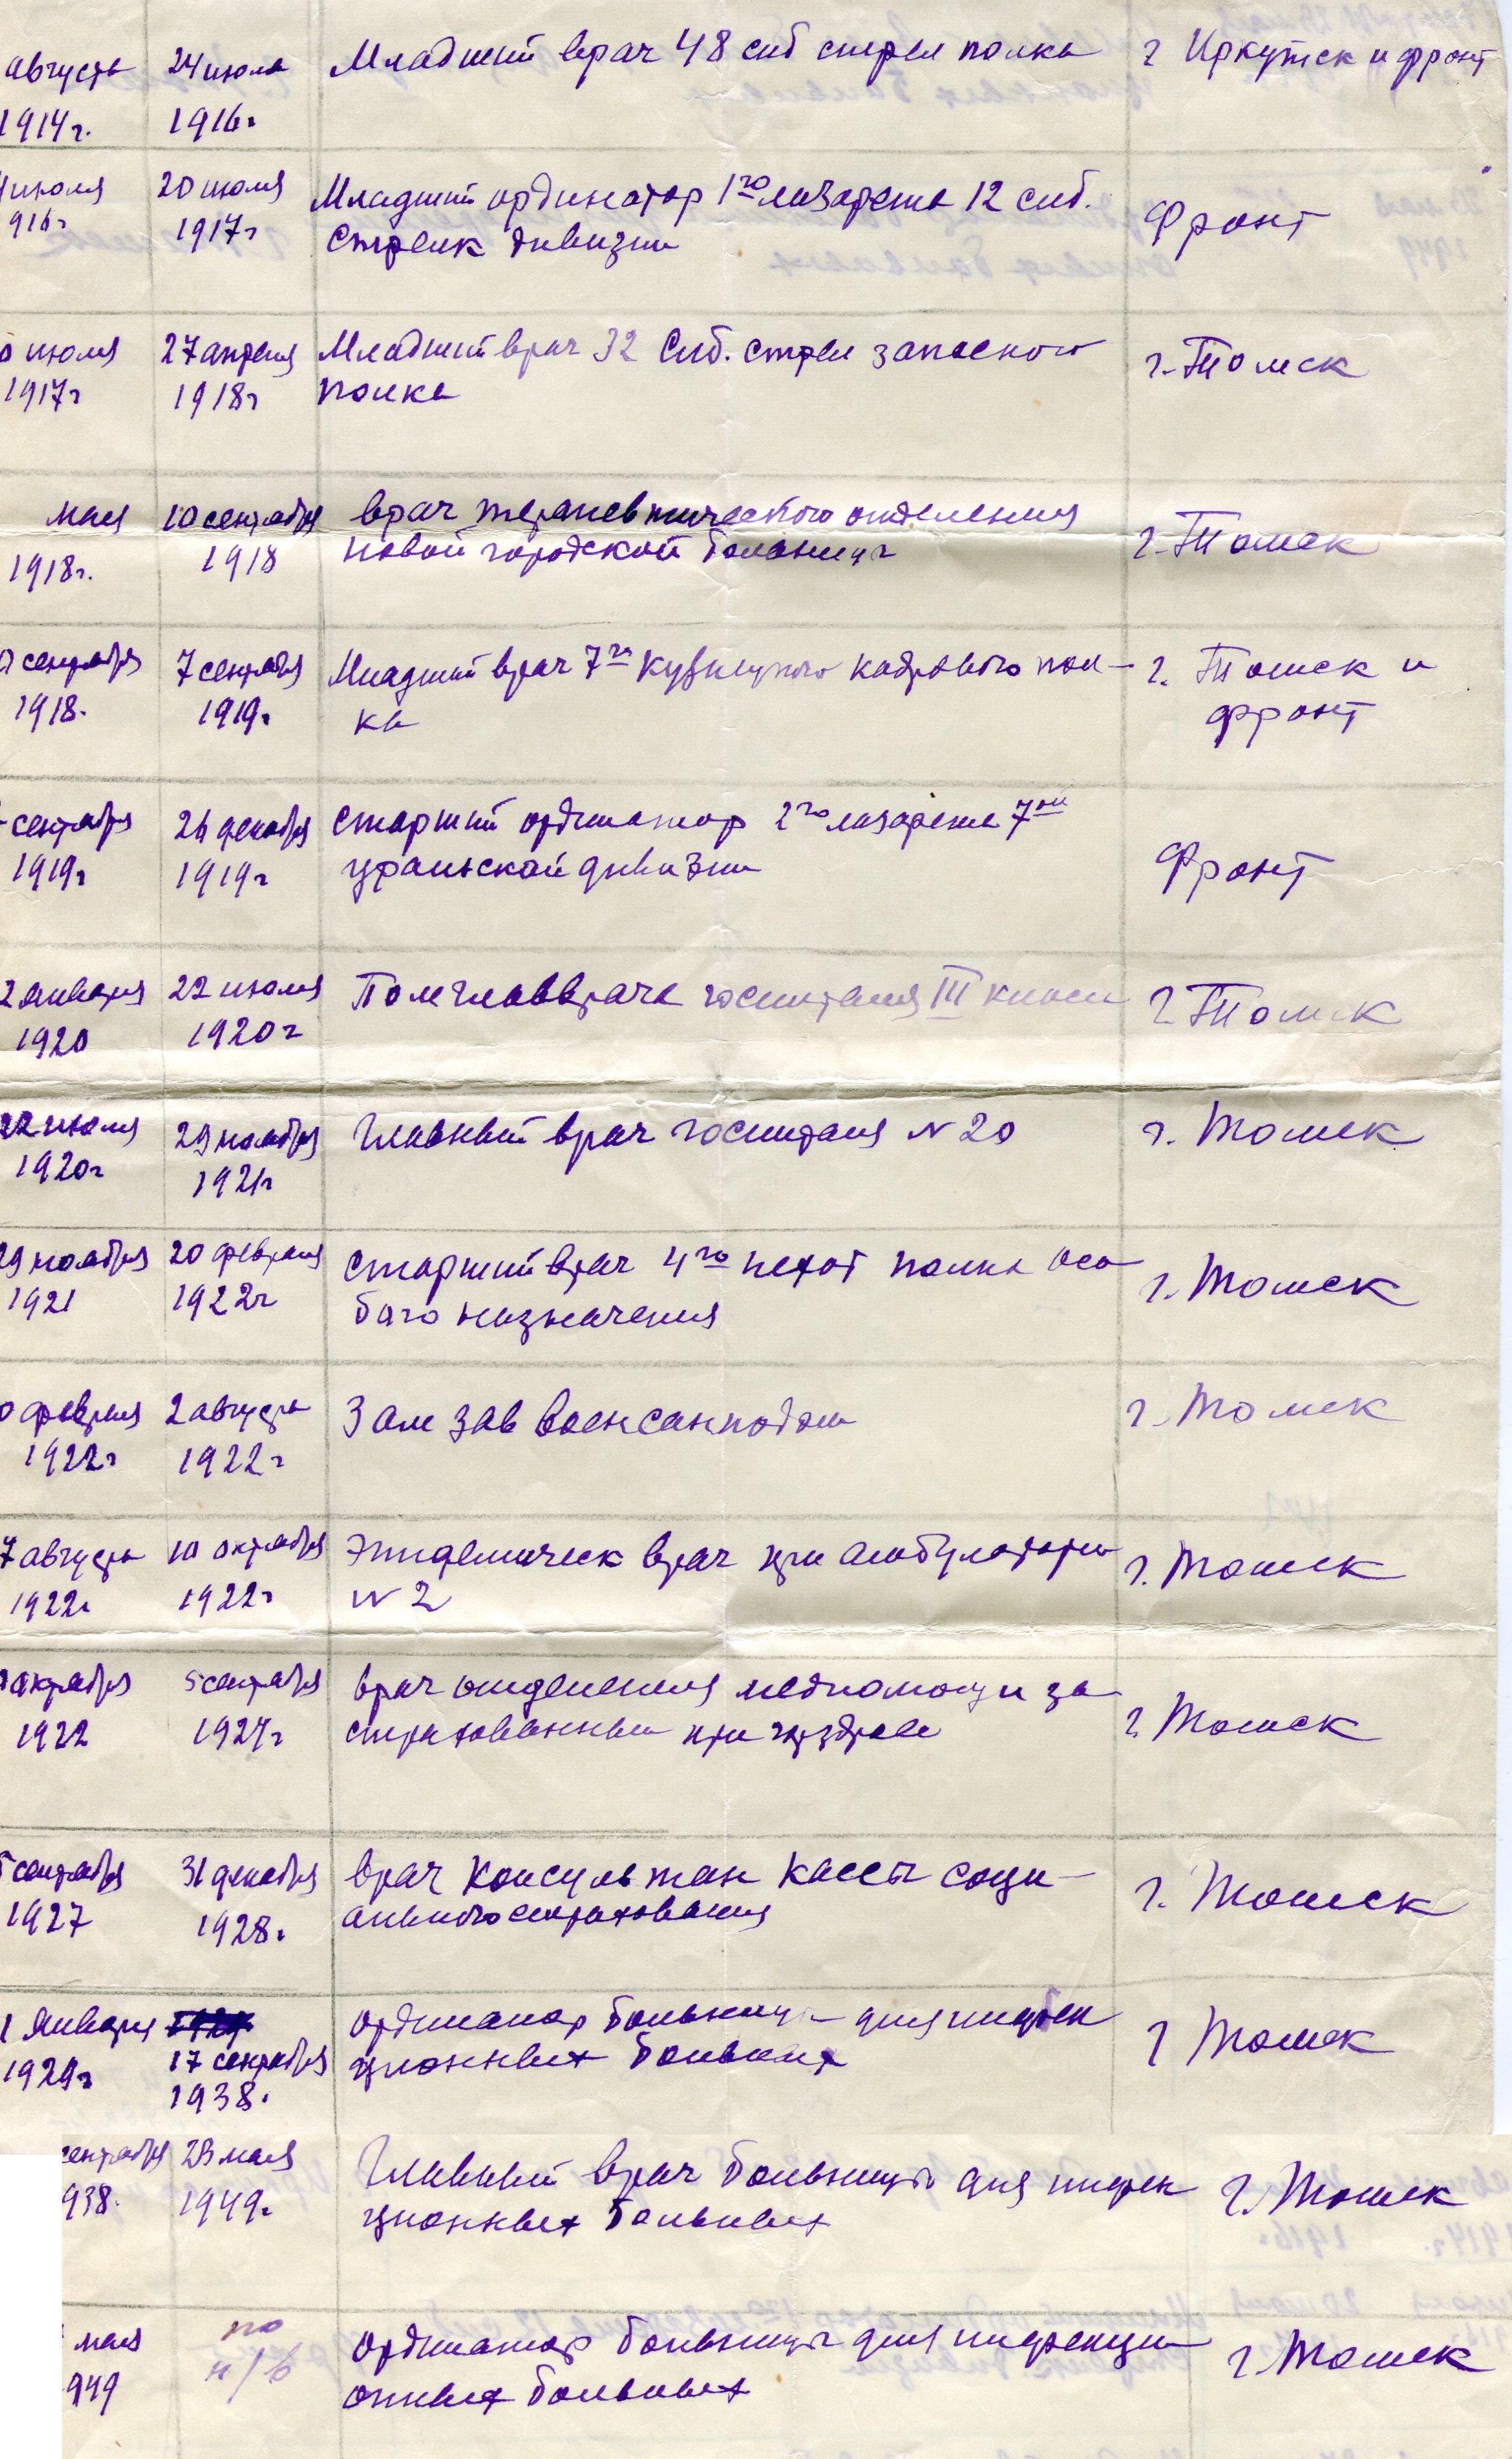 августа 24 июля Младший врач 48 сиб стрел полка г Иркутск и фронт
1914г. 1916г
июля 20 июля Младший ординатор 1го лазарета 12 сиб.
916г 1917г стрелк дивизии Фронт
июля 27 апреля Младший врач 32 Сиб. стрел запасного г. Томск
1917г 1918г полка
мая 10 сентября врач терапевтического отделения
1918г. 1918 новой городской больницы г. Томск
сентября 7 сентября Младший врач 7го Кузнецкого кадрового пол- г. Томск и
1918. 1919г. ка фронт
сентября 26 декабря Старший ординатор 2го лазарета 7ой
1919г 1919г уральской дивизии Фронт
2 января 22 июля Помглавврача госпиталя III класса г Томск
1920 1920г
22 июля 29 ноября Главный врач госпиталя N 20 г. Томск
1920г 1921г
29 ноября 20 февраля Старший врач 4го пехот полка осо
1921 1922г бого назначения г. Томск
февраля 2 августа Зам зав военсанподом г. Томск
1922г 1922г
7 августа 10 октября Эпидемическ врач при амбулатории г. Томск
1922г 1922г N 2
октября 5 сентября врач отделения медпомощи за
1922 1927г страхованным при горздраве г Томск
сентября 31 декабря врач консультан кассы соци-
1927 1928г. ального страхования г. Томск
1 января ординатор больницы для инфек
1929г 17 сентября ционных больных г Томск
1938г
сентября 23 мая Главный врач больницы для инфек г. Томск
938. 1949г. ционных больных
мая по ординатор больницы для инфекци г. Томск
949 н/в онных больных